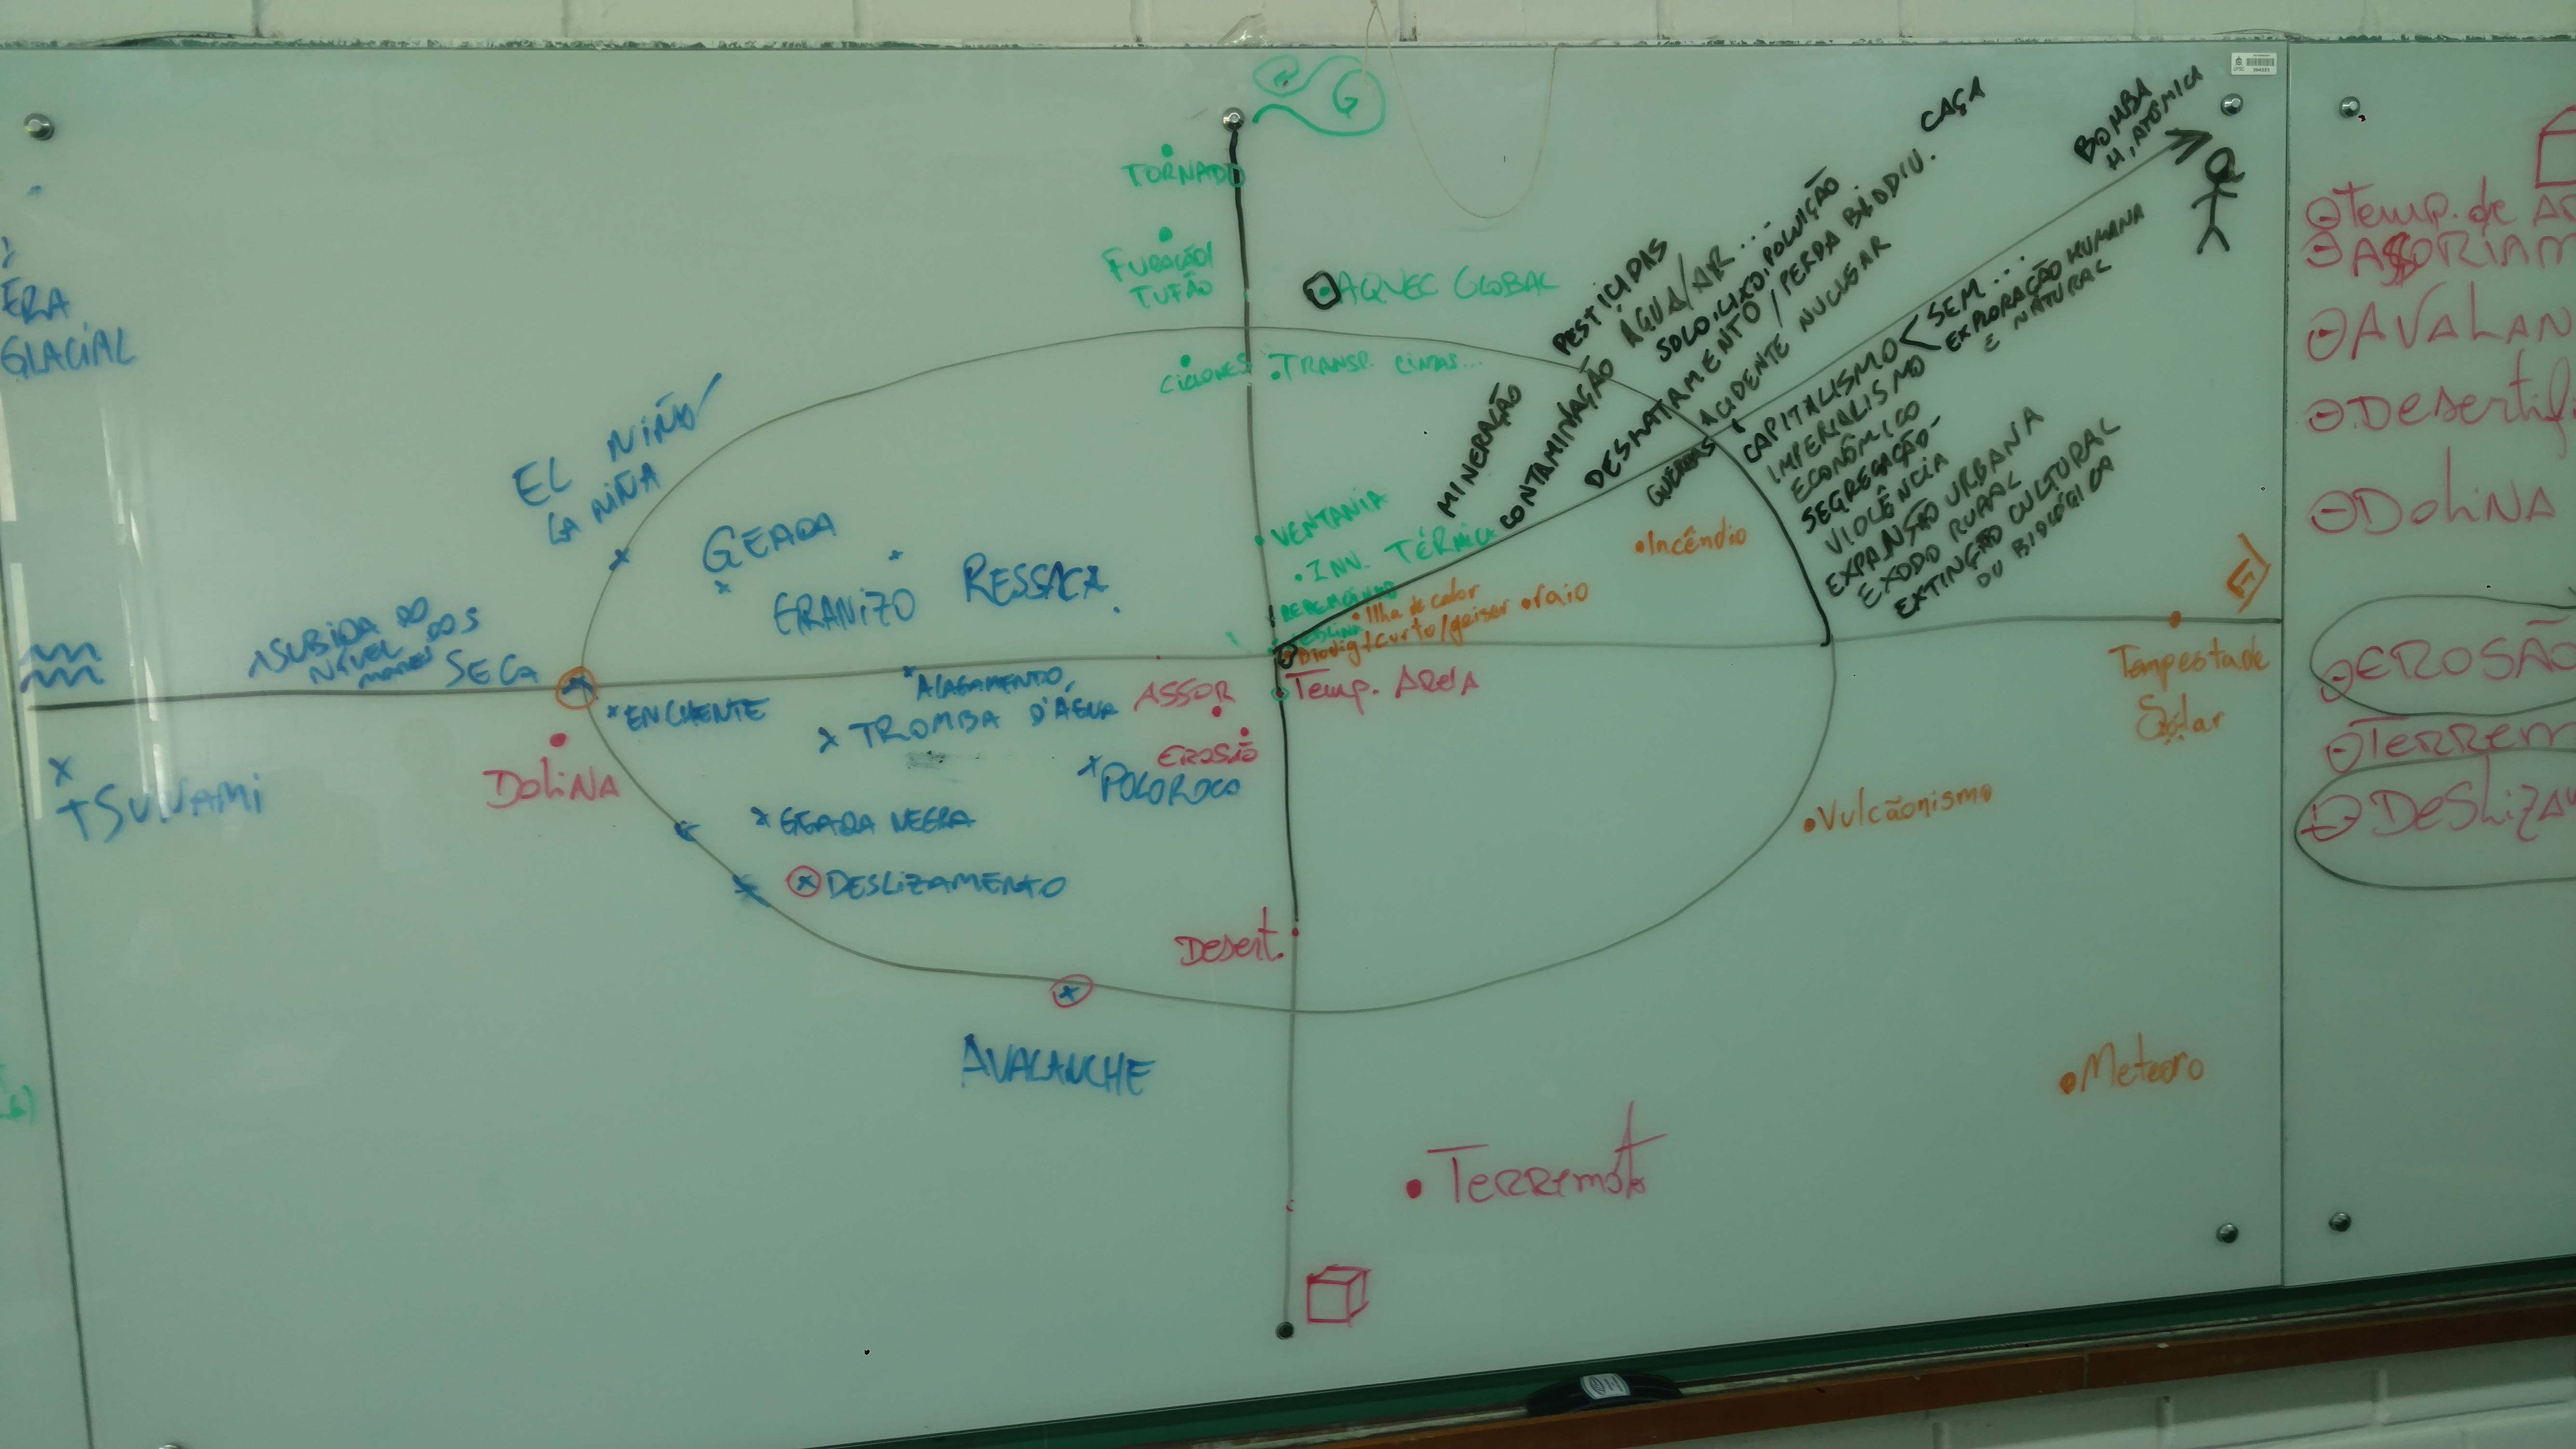 G
TORNADO
FURACÃO/
TUFÃO
AQUEC GLOBAL
CICLONES
TRANSP. CINZAS...
VENTANIA
INV. TÉRMICA
PESTICIDAS
MINERAÇÃO
CONTAMINAÇÃO ÁGUA/AR...
SOLO, LIXO, POLUIÇÃO
DESMATAMENTO / PERDA BIODIV.
CAÇA
ACIDENTE NUCLEAR
GUERRAS
BOMBA
H, ATÔMICA
CAPITALISMO
SEM...
EXPLORAÇÃO HUMANA
E NATURAL
IMPERIALISMO
ECONÔMICO
SEGREGAÇÃO-
VIOLÊNCIA
EXPANSÃO URBANA
EXODO RURAL
EXTINÇÃO CULTURAL
OU BIOLÓGICA
ERA
GLACIAL
EL NIÑO/
LA NIÑA
GEADA
GRANIZO
RESSACA
SUBIDA DO
NÍVEL DOS
MARES
SECA
ENCHENTE
ALAGAMENTO,
TROMBA D'ÁGUA
TSUNAMI
DOLINA
POLOROCA
GEADA NEGRA
DESLIZAMENTO
AVALANCHE
ASSOR
EROSÃO
Temp. AReiA
Desert.
TeRRemoto
Incêndio
Ilha de calor
curto/geiser
raio
Tempestade
Solar
Vulcãonismo
Meteoro
Temp. de AR
ASSORIAM
AVALAN
Desertif
DOLINA
EROSÃO
TeRRem
DeSLiZA